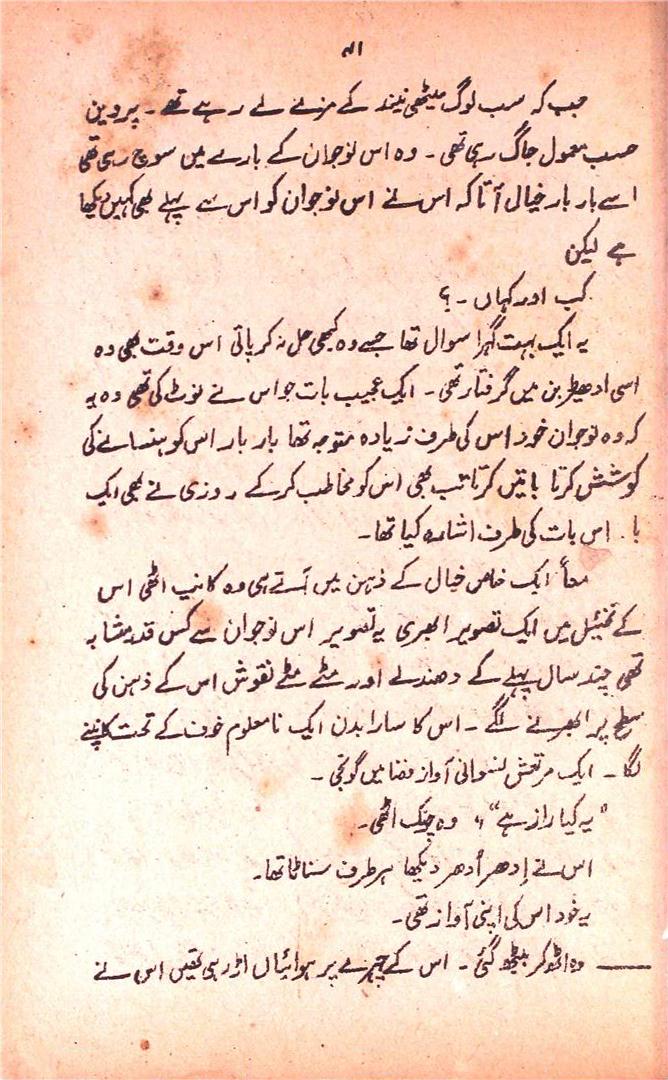 ۷۱
جب کہ سب لوگ میٹھی نیند کے مزے لے رہے تھے ۔ پروین
حسب معمول جاگ رہی تھی ۔ وہ اس نوجوان کے بارے میں سوچ رہی تھی
اسے بار بار خیال آتا کہ اس نے اس نوجوان کو اس سے پہلے بھی کہیں دیکھا
ہے لیکن
کب اور کہاں ۔ ؟
یہ ایک بہت گہرا سوال تھا جسے وہ کبھی حل نہ کر پاتی اس وقت بھی وہ
اسی ادھیڑ بن میں گرفتار تھی ۔ ایک عجیب بات جو اس نے نوٹ کی تھی وہ یہ
کہ وہ نوجوان خود اس کی طرف زیادہ متوجہ تھا بار بار اس کو ہنسانے کی
کوشش کرتا باتیں کرتا تب بھی اس کو مخاطب کرکے روزی نے بھی ایک
با۔ اس بات کی طرف اشارہ کیا تھا ۔
معاً ایک خاص خیال کے ذہن میں آتے ہی وہ کانپ اٹھی اس
کے تخئیل میں ایک تصویر ابھری یہ تصویر اس نوجوان سے کس قدر مشابہ
تھی چند سال پہلے کے دھندلے اور مٹے مٹے نقوش اس کے ذہن کی
سطح پر ابھرنے لگے ۔ اس کا سارا بدن ایک نامعلوم خوف کے تحت کانپنے
لگا ۔ ایک مرتعش نسوانی آواز فضا میں گونجی ۔
"یہ کیا راز ہے"، وہ چونک اٹھی ۔
اس نے اِدھر اُدھر دیکھا ہر طرف سناٹا تھا ۔
یہ خود اس کی اپنی آواز تھی ۔
—— وہ اٹھ کر بیٹھ گئی ۔ اس کے چہرے پر ہوائیاں اڑ رہی تھیں اس نے